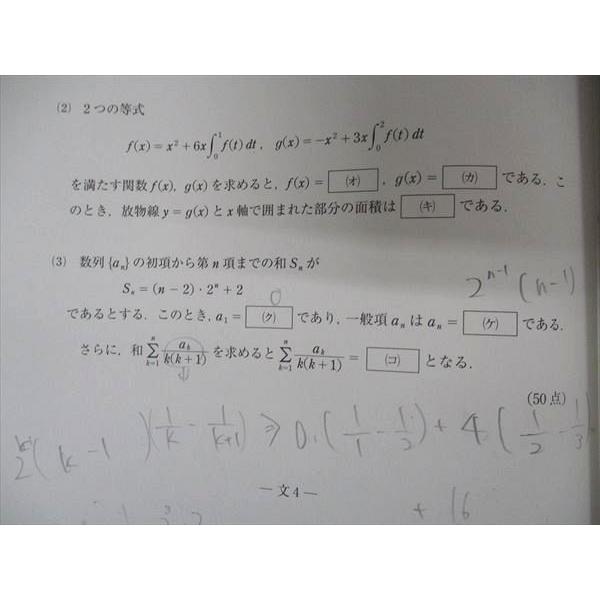 (2) 2つの等式
f(x)=x²+6x∫₀¹f(t)dt, g(x)=-x²+3x∫₀²f(t)dt
を満たす関数f(x), g(x)を求めると, f(x)= (オ) , g(x)= (カ) である. こ
のとき, 放物線y=g(x)とx軸で囲まれた部分の面積は (キ) である.
(3) 数列{aₙ}の初項から第n項までの和Sₙが
2ⁿ⁻¹(n-1)
Sₙ=(n-2)·2ⁿ+2
0
であるとする. このとき, a₁= (ク) であり, 一般項aₙはaₙ= (ケ) である.
さらに, 和∑ₖ₌₁ⁿ aₖ/k(k+1) を求めると∑ₖ₌₁ⁿ aₖ/k(k+1) = (コ) となる.
(50点)
(k-1)(1/k - 1/k+1) ⇒ 0.(1/1 - 1/2) + 4.(1/2 - 1/3)
— 文4 —
+ 16